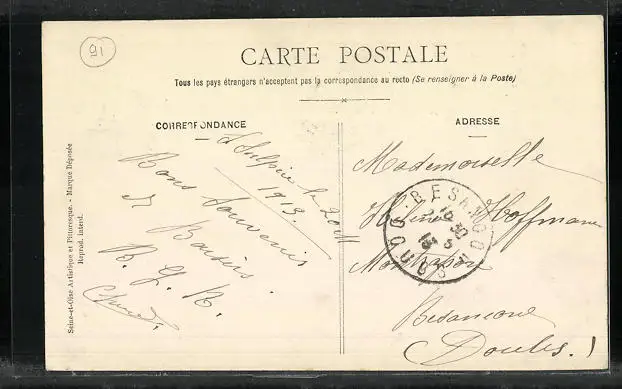 91
CARTE POSTALE
Tous les pays étrangers n'acceptent pas la correspondance au recto (Se renseigner à la Poste)
CORRESPONDANCE
St Sulpice le
1913
Bons Souvenirs
et Baisers.
ADRESSE
Mademoiselle
Hélène Hoffmann
Besançon
Doubs.
BESANÇON
DOUBS
Seine-et-Oise Artistique et Pittoresque. - Marque Déposée
Reprod. interd.